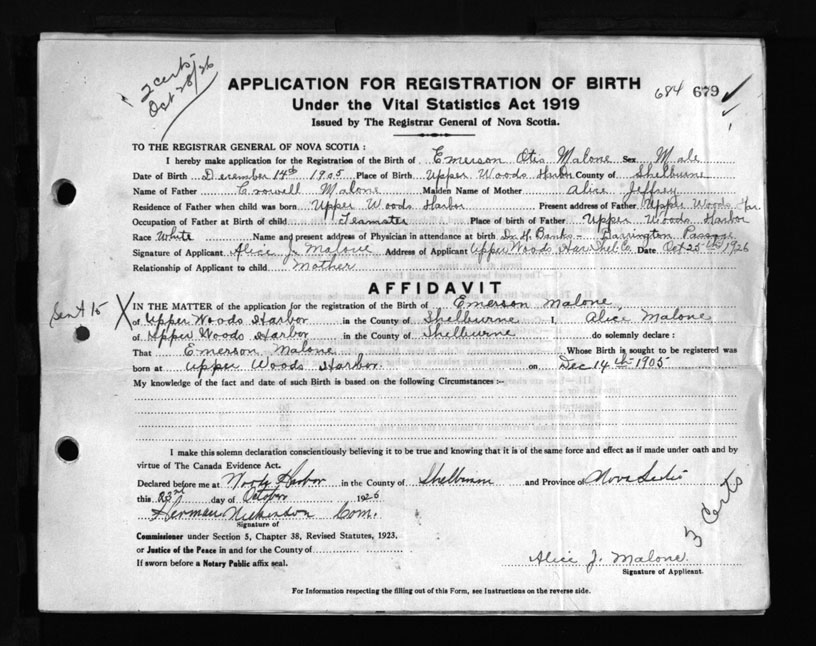 2 certs
Oct 28/26
APPLICATION FOR REGISTRATION OF BIRTH
684 679
Under the Vital Statistics Act 1919
Issued by The Registrar General of Nova Scotia.
TO THE REGISTRAR GENERAL OF NOVA SCOTIA :
I hereby make application for the Registration of the Birth of Emerson Otis Malone Sex Male
Date of Birth December 14th 1905 Place of Birth Upper Woods Harbor County of Shelburne
Name of Father Crowell Malone Maiden Name of Mother Alice Jeffrey
Residence of Father when child was born Upper Woods Harbor Present address of Father Upper Woods Hr.
Occupation of Father at Birth of child Teamster Place of birth of Father Upper Woods Harbor
Race White Name and present address of Physician in attendance at birth Dr. H. Banks - Barrington Passage
Signature of Applicant Alice J. Malone Address of Applicant Upper Woods Har Shel Co Date Oct 25th 1926
Relationship of Applicant to child Mother
AFFIDAVIT
Sent 15
IN THE MATTER of the application for registration of the Birth of Emerson Malone,
of Upper Woods Harbor in the County of Shelburne I, Alice Malone
of Upper Woods Harbor in the County of Shelburne do solemnly declare :
That Emerson Malone Whose Birth is sought to be registered was
born at Upper Woods Harbor on Dec 14th 1905
My knowledge of the fact and date of such Birth is based on the following Circumstances :-
I make this solemn declaration conscientiously believing it to be true and knowing that it is of the same force and effect as if made under oath and by
virtue of The Canada Evidence Act.
Declared before me at Woods Harbor in the County of Shelburne and Province of Nova Scotia
this 23rd day of October 1926
Herman Nickerson Com.
Signature of
Commissioner under Section 5, Chapter 38, Revised Statutes, 1923.
or Justice of the Peace in and for the County of
If sworn before a Notary Public affix seal.
Certs
Alice J. Malone
Signature of Applicant.
For Information respecting the filling out of this Form, see Instructions on the reverse side.